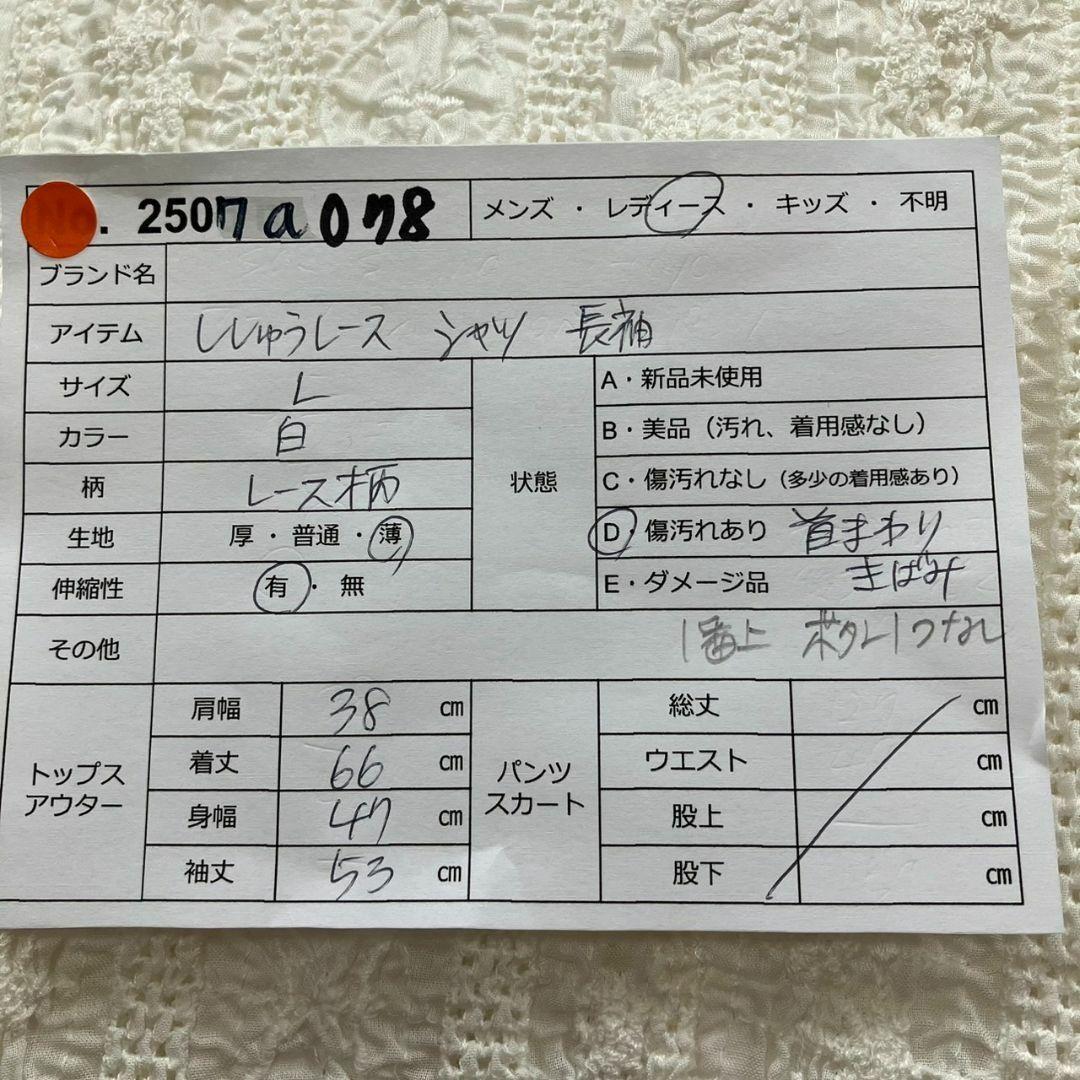 No. 2507a078 メンズ ・ レディース ・ キッズ ・ 不明
ブランド名
アイテム ししゅうレース シャツ 長袖
サイズ L
カラー 白
柄 レース柄
生地 厚 ・ 普通 ・ 薄
伸縮性 有 ・ 無
状態
A・新品未使用
B・美品（汚れ、着用感なし）
C・傷汚れなし（多少の着用感あり）
D・傷汚れあり 首まわり
きばみ
E・ダメージ品
その他 1番上 ボタン1つなし
トップス
アウター
肩幅 38 cm
着丈 66 cm
身幅 47 cm
袖丈 53 cm
パンツ
スカート
総丈 cm
ウエスト cm
股上 cm
股下 cm